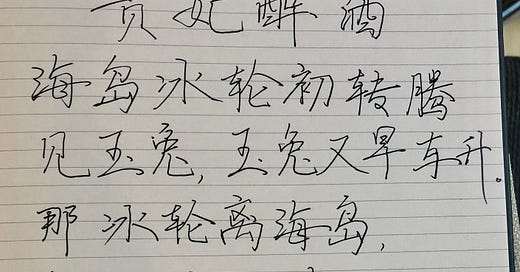 贵妃醉酒
海岛冰轮初转腾
见玉兔,玉兔又早东升.
那冰轮离海岛,